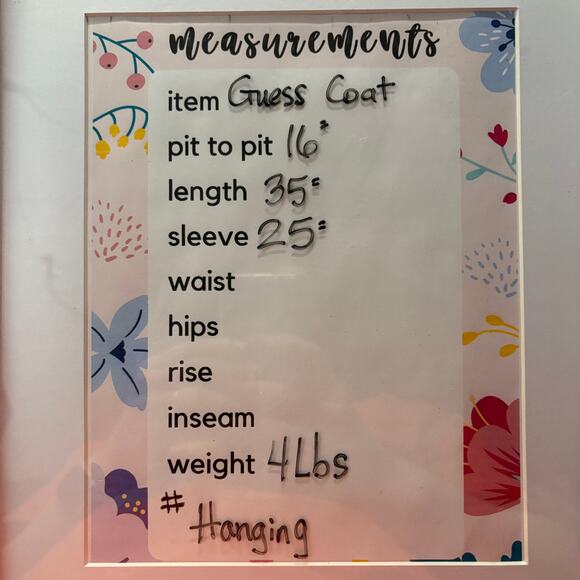 measurements
item Guess Coat
pit to pit 16"
length 35"
sleeve 25"
waist
hips
rise
inseam
weight 4Lbs
#
Hanging